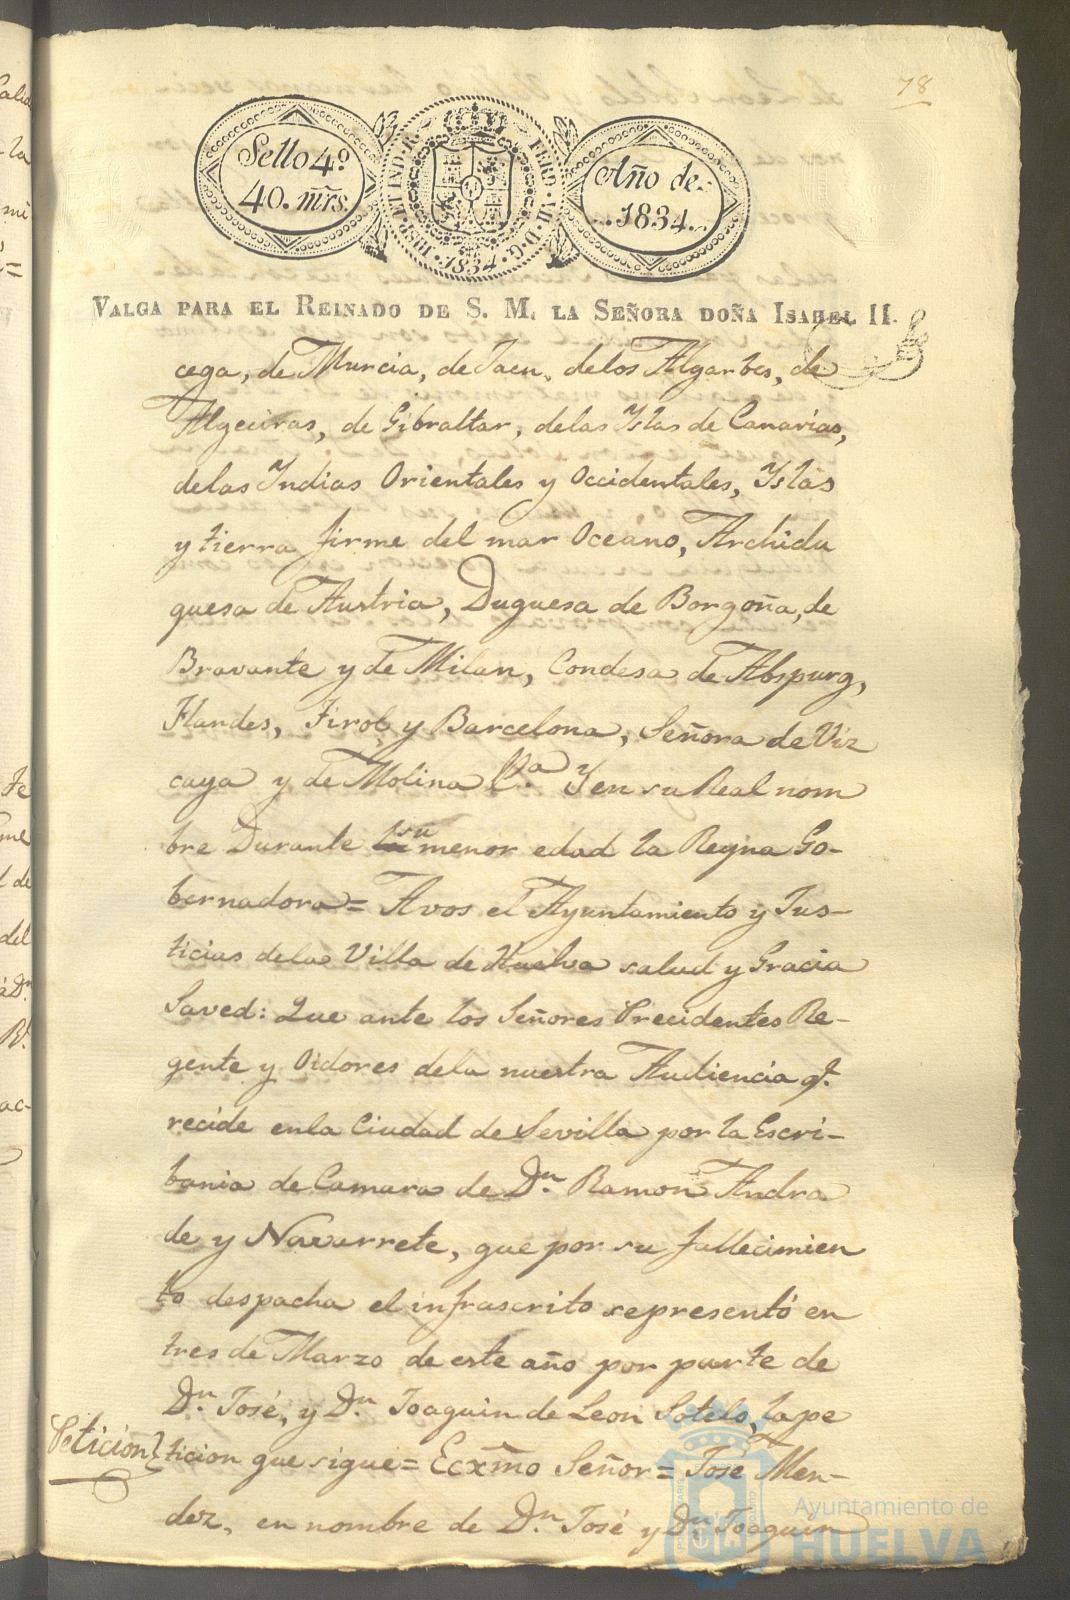 78
Sello 4º
40. mrs.
HISP. ET IND. R. FERD. VII. D. G.
1834
Año de
1834.
VALGA PARA EL REINADO DE S. M. LA SEÑORA DOÑA ISABEL II.
cega, de Murcia, de Jaen, delos Algarbes, de
Algeciras, de Gibraltar, delas Yslas de Canarias,
delas Yndias Orientales y Occidentales, Yslas
y tierra firme del mar Oceano, Archidu
quesa de Austria, Duquesa de Borgoña, de
Bravante y de Milan, Condesa de Abspurg,
Flandes, Tirol y Barcelona, Señora de Viz
caya y de Molina &.a Y en su Real nom
bre Durante su menor edad la Reyna Go-
bernadora= Avos el Ayuntamiento y Jus-
ticias dela Villa de Huelva salud y Gracia
Saved: Que ante los Señores Precidentes Re-
gente y Oidores dela nuestra Audiencia q.
recide enla Ciudad de Sevilla por la Escri-
bania de Camara de Dn. Ramon Andra
de y Navarrete, que por su fallecimien
to despacha el infrascrito se presentó en
tres de Marzo de este año por parte de
Dn. José, y Dn. Joaquin de Leon Sotelo, la pe
Peticion} ticion que sigue= Ecxmo Señor= José Men-
dez, en nombre de Dn. José y Dn. Joaquin
Ayuntamiento de
HUELVA